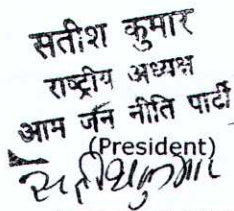 सतीश कुमार
राष्ट्रीय अध्यक्ष
आम जन नीति पार्टी
(President)
सतीश कुमार